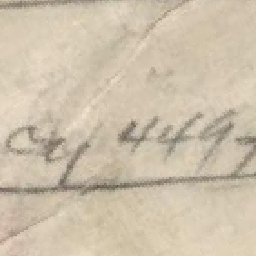 cy 4497